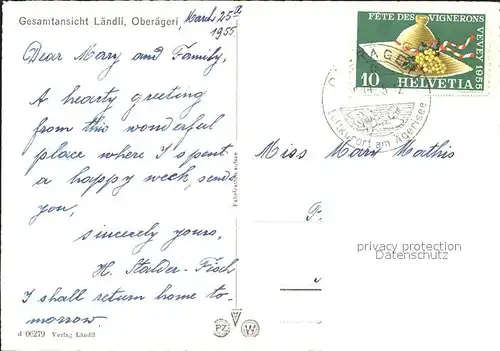 Gesamtansicht Ländli, Oberägeri
March 25th
1955
Dear Mary and Family,
A hearty greeting
from this wonderful
place where I spent
a happy week, sends
you,
sincerely yours,
H. Stalder-Fisch
I shall return home to-
morrow.
d 06279 Verlag Ländli
PZ W
FÊTE DES VIGNERONS
VEVEY 1955
10 HELVETIA
Luftkurort am Ägerisee
Miss Mary Mathis
privacy protection
DATENSCHUTZ